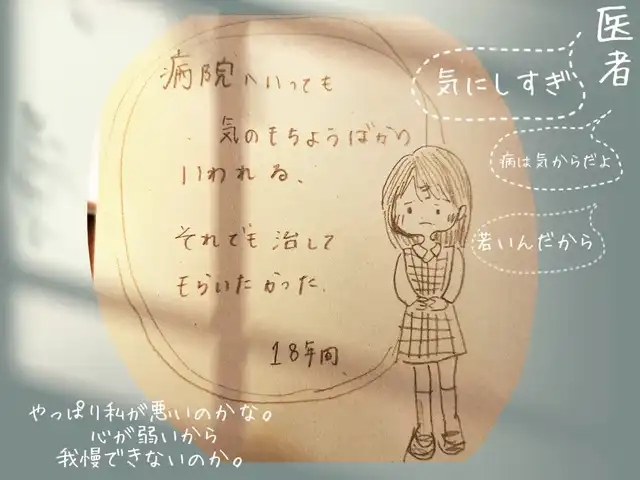 医者
気にしすぎ
病は気からだよ
若いんだから
病院へいっても
気のもちようばかり
いわれる、
それでも治して
もらいたかった.
18年間、
やっぱり私が悪いのかな。
心が弱いから
我慢できないのか。